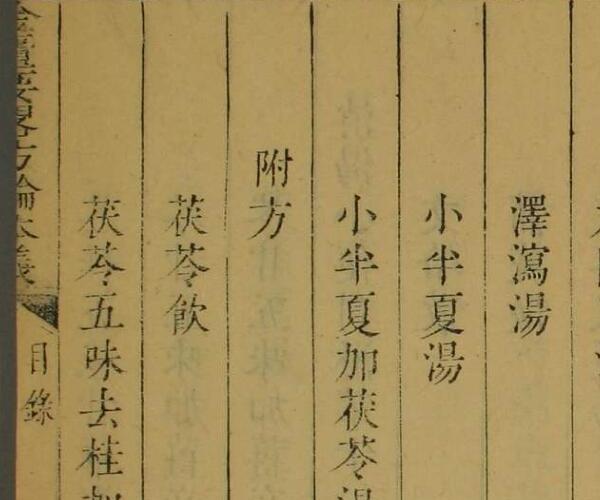 澤瀉湯
小半夏湯
小半夏加茯苓湯
附方
茯苓飲
茯苓五味去桂
金匱要畧方論本義
目錄